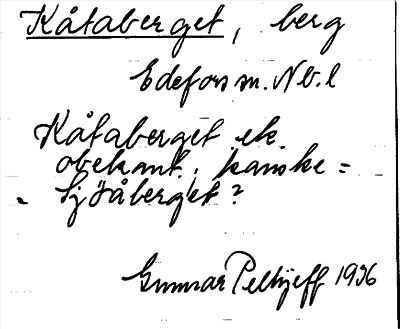 Kåtaberget, berg
Edefors sn. Nb. l
Kåtaberget ek.
obekant, kanske =
= Sjöåberget?
Gunnar Pellijeff 1936